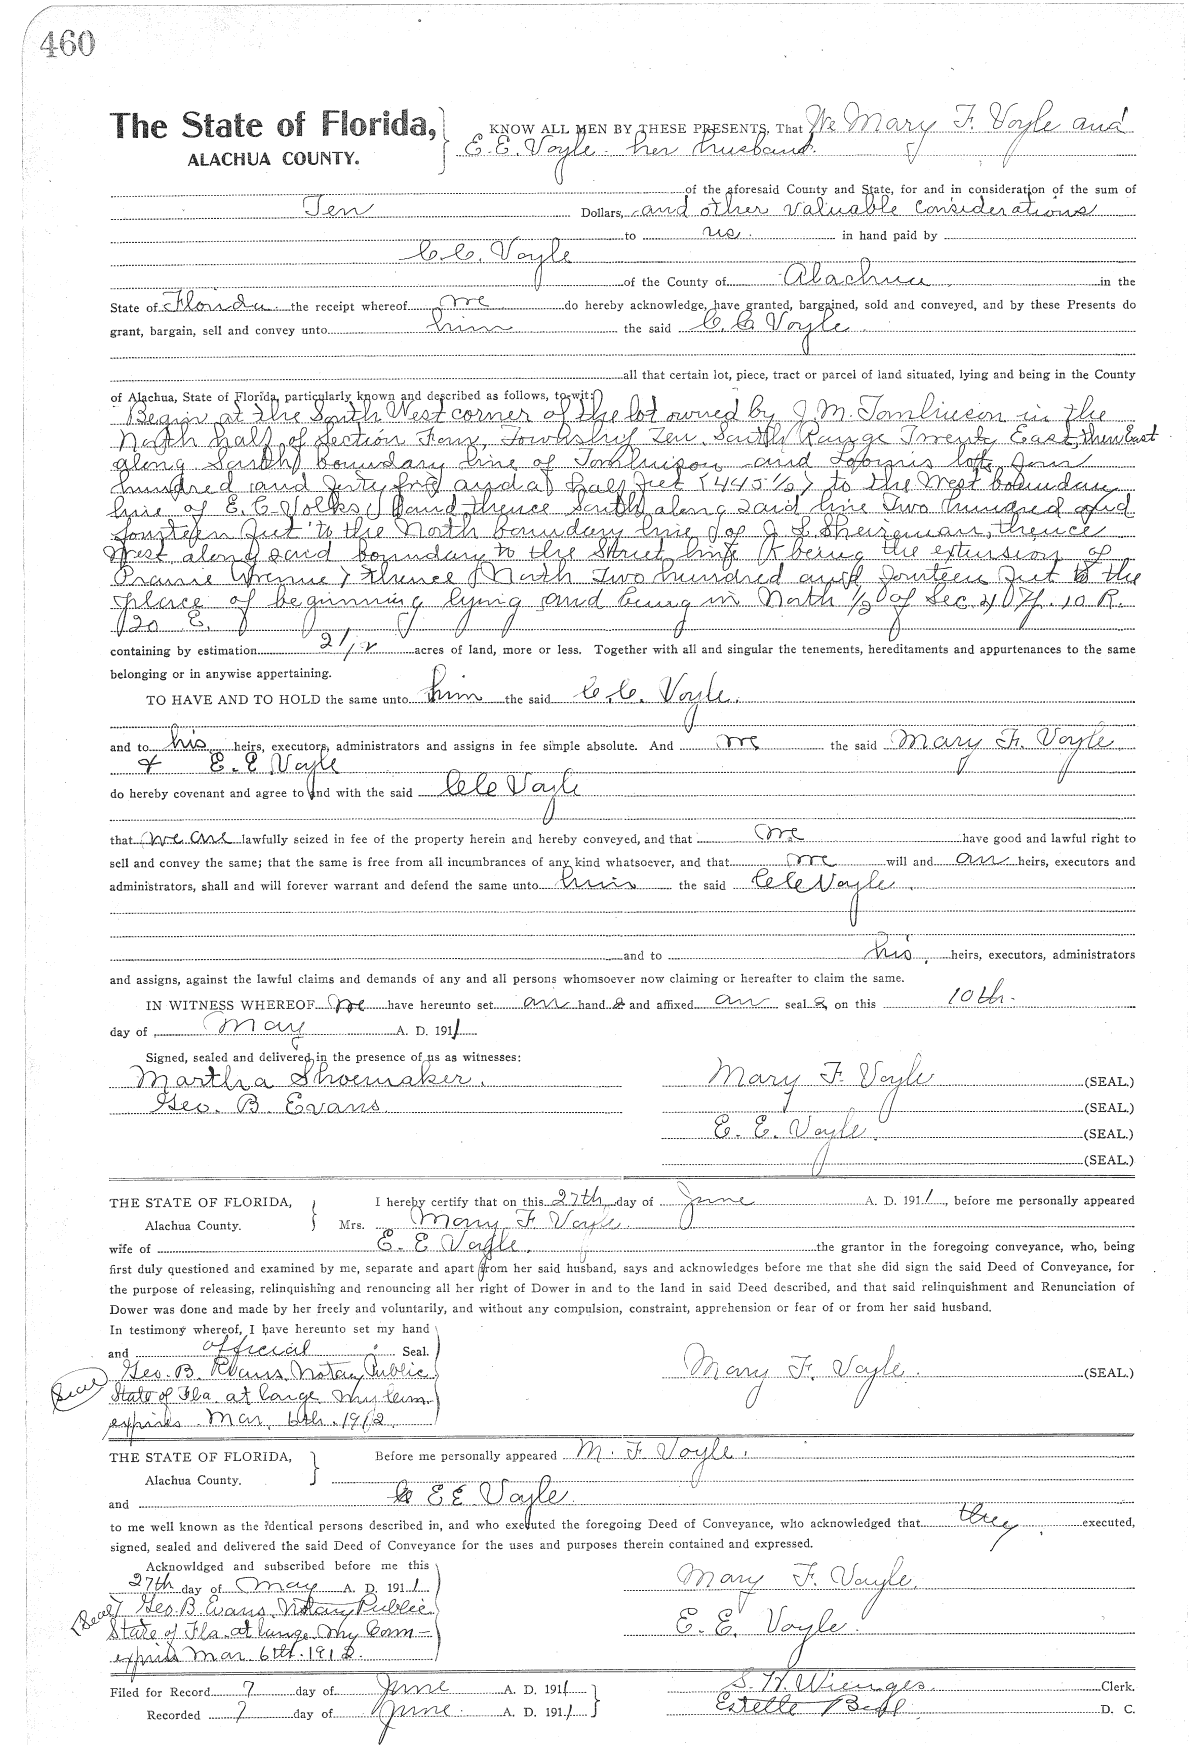 460
The State of Florida,
ALACHUA COUNTY.
KNOW ALL MEN BY THESE PRESENTS, That We Mary F. Voyle and
E. E. Voyle her husband.
of the aforesaid County and State, for and in consideration of the sum of
Ten Dollars, and other valuable considerations
to us. in hand paid by
C. C. Voyle
of the County of Alachua in the
State of Florida the receipt whereof we do hereby acknowledge, have granted, bargained, sold and conveyed, and by these Presents do
grant, bargain, sell and convey unto him the said C. C. Voyle
all that certain lot, piece, tract or parcel of land situated, lying and being in the County
of Alachua, State of Florida, particularly known and described as follows, to-wit:
Begin at the South West corner of the lot owned by J. M. Tomlinson in the
North half of Section Four, Township Ten South Range Twenty East, then East
along South boundary line of Tomlinson and Loomis lots four
hundred and forty five and a half feet (445 1/2) to the West boundary
line of E. C. Volks, and thence South along said line Two hundred and
fourteen feet to the North boundary line of J. L. Sheireman, thence
West along said boundary to the Street line (it being the extension of
Prairie Avenue) thence North Two hundred and fourteen feet to the
place of beginning lying and being in North 1/2 of Sec 4 Tp. 10 R.
20 E.
containing by estimation 2 1/2 acres of land, more or less. Together with all and singular the tenements, hereditaments and appurtenances to the same
belonging or in anywise appertaining.
TO HAVE AND TO HOLD the same unto him the said C. C. Voyle.
and to his heirs, executors, administrators and assigns in fee simple absolute. And we the said Mary F. Voyle
& E. E. Voyle
do hereby covenant and agree to and with the said C C Voyle
that we are lawfully seized in fee of the property herein and hereby conveyed, and that we have good and lawful right to
sell and convey the same; that the same is free from all incumbrances of any kind whatsoever, and that we will and our heirs, executors and
administrators, shall and will forever warrant and defend the same unto him the said C C Voyle.
and to his heirs, executors, administrators
and assigns, against the lawful claims and demands of any and all persons whomsoever now claiming or hereafter to claim the same.
IN WITNESS WHEREOF we have hereunto set our hand s and affixed our seal s, on this 10th.
day of May A. D. 1911
Signed, sealed and delivered in the presence of us as witnesses:
Martha Shoemaker.
Mary F. Voyle (SEAL.)
Geo. B. Evans.
(SEAL.)
E. E. Voyle. (SEAL.)
(SEAL.)
THE STATE OF FLORIDA,
Alachua County.
I hereby certify that on this 27th day of June A. D. 1911, before me personally appeared
Mrs. Mary F Voyle
wife of E. E Voyle. the grantor in the foregoing conveyance, who, being
first duly questioned and examined by me, separate and apart from her said husband, says and acknowledges before me that she did sign the said Deed of Conveyance, for
the purpose of releasing, relinquishing and renouncing all her right of Dower in and to the land in said Deed described, and that said relinquishment and Renunciation of
Dower was done and made by her freely and voluntarily, and without any compulsion, constraint, apprehension or fear of or from her said husband.
In testimony whereof, I have hereunto set my hand
and official Seal.
Geo. B. Evans Notary Public
Mary F. Voyle. (SEAL)
Seal
State of Fla. at large My Com.
expires Mar. 6th. 1912
THE STATE OF FLORIDA,
Alachua County.
Before me personally appeared M. F. Voyle.
and E E Voyle
to me well known as the identical persons described in, and who executed the foregoing Deed of Conveyance, who acknowledged that they executed,
signed, sealed and delivered the said Deed of Conveyance for the uses and purposes therein contained and expressed.
Acknowldged and subscribed before me this
27th day of May A. D. 1911
Mary F. Voyle.
(Seal) Geo. B. Evans, Notary Public
State of Fla. at large My Com-
E. E. Voyle.
expires Mar. 6th. 1912.
Filed for Record 7 day of June A. D. 1911
S. H. Wienges Clerk.
Recorded 7 day of June A. D. 1911
Estelle Bell D. C.